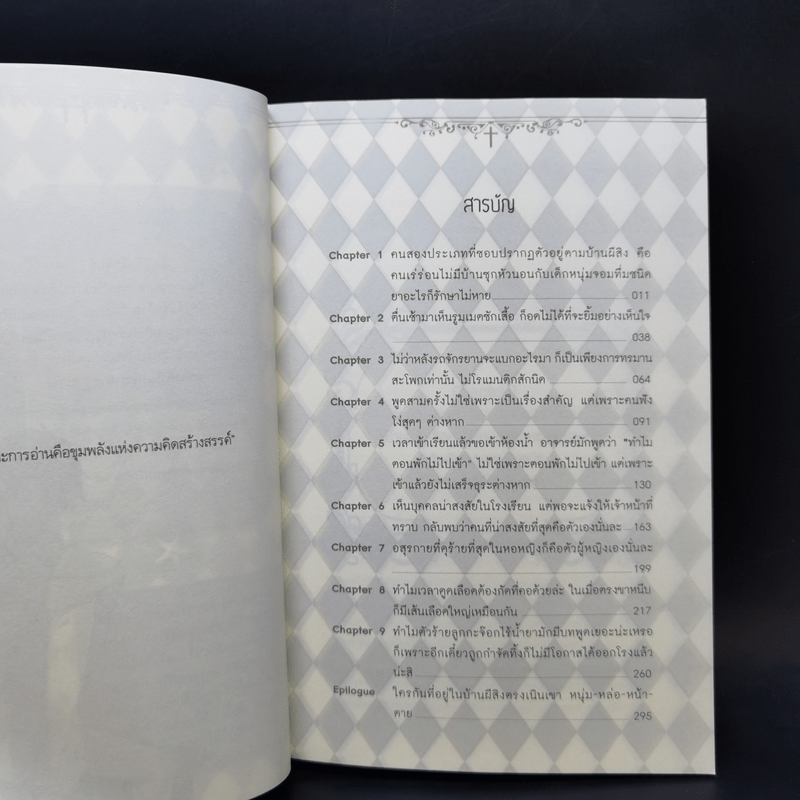 ะการอ่านคือขุมพลังแห่งความคิดสร้างสรรค์"
สารบัญ
Chapter 1 คนสองประเภทที่ชอบปรากฏตัวอยู่ตามบ้านผีสิง คือ
คนเร่ร่อนไม่มีบ้านซุกหัวนอนกับเด็กหนุ่มจอมทึ่มชนิด
ยาอะไรก็รักษาไม่หาย 011
Chapter 2 ตื่นเช้ามาเห็นรูมเมตซักเสื้อ ก็อดไม่ได้ที่จะยิ้มอย่างเห็นใจ
038
Chapter 3 ไม่ว่าหลังรถจักรยานจะแบกอะไรมา ก็เป็นเพียงการทรมาน
สะโพกเท่านั้น ไม่โรแมนติกสักนิด 064
Chapter 4 พูดสามครั้งไม่ใช่เพราะเป็นเรื่องสำคัญ แต่เพราะคนฟัง
โง่สุดๆ ต่างหาก 091
Chapter 5 เวลาเข้าเรียนแล้วขอเข้าห้องน้ำ อาจารย์มักพูดว่า "ทำไม
ตอนพักไม่ไปเข้า" ไม่ใช่เพราะตอนพักไม่ไปเข้า แต่เพราะ
เข้าแล้วยังไม่เสร็จธุระต่างหาก 130
Chapter 6 เห็นบุคคลน่าสงสัยในโรงเรียน แต่พอจะแจ้งให้เจ้าหน้าที่
ทราบ กลับพบว่าคนที่น่าสงสัยที่สุดคือตัวเองนั่นละ 163
Chapter 7 อสุรกายที่ดุร้ายที่สุดในหอหญิงก็คือตัวผู้หญิงเองนั่นละ
199
Chapter 8 ทำไมเวลาดูดเลือดต้องกัดที่คอด้วยล่ะ ในเมื่อตรงขาหนีบ
ก็มีเส้นเลือดใหญ่เหมือนกัน 217
Chapter 9 ทำไมตัวร้ายลูกกะจ๊อกไร้น้ำยามักมีบทพูดเยอะน่ะเหรอ
ก็เพราะอีกเดี๋ยวถูกกำจัดทิ้งก็ไม่มีโอกาสได้ออกโรงแล้ว
น่ะสิ 260
Epilogue ใครกันที่อยู่ในบ้านผีสิงตรงเนินเขา หนุ่ม-หล่อ-หน้า-
ตาย 295